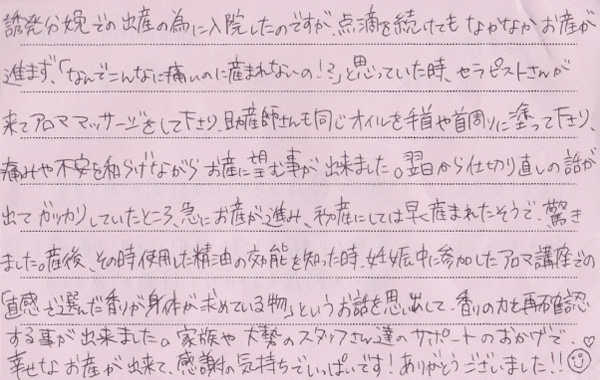 誘発分娩での出産の為に入院したのですが、点滴を続けてもなかなかお産が
進まず、「なんでこんなに痛いのに産まれないの!?」と思っていた時、セラピストさんが
来てアロママッサージをして下さり、助産師さんも同じオイルを手首や首周りに塗って下さり、
痛みや不安を和らげながらお産に望む事が出来ました。翌日から仕切り直しの話が
出てガッカリしていたところ、急にお産が進み、初産にしては早く産まれたそうで、驚き
ました。産後、その時使用した精油の効能を知った時、妊娠中に参加したアロマ講座での
「直感で選んだ香りが身体が求めている物」というお話を思い出して、香りの力を再確認
する事が出来ました。家族や大勢のスタッフさん達のサポートのおかげで、
幸せなお産が出来て、感謝の気持ちでいっぱいです!ありがとうございました!!